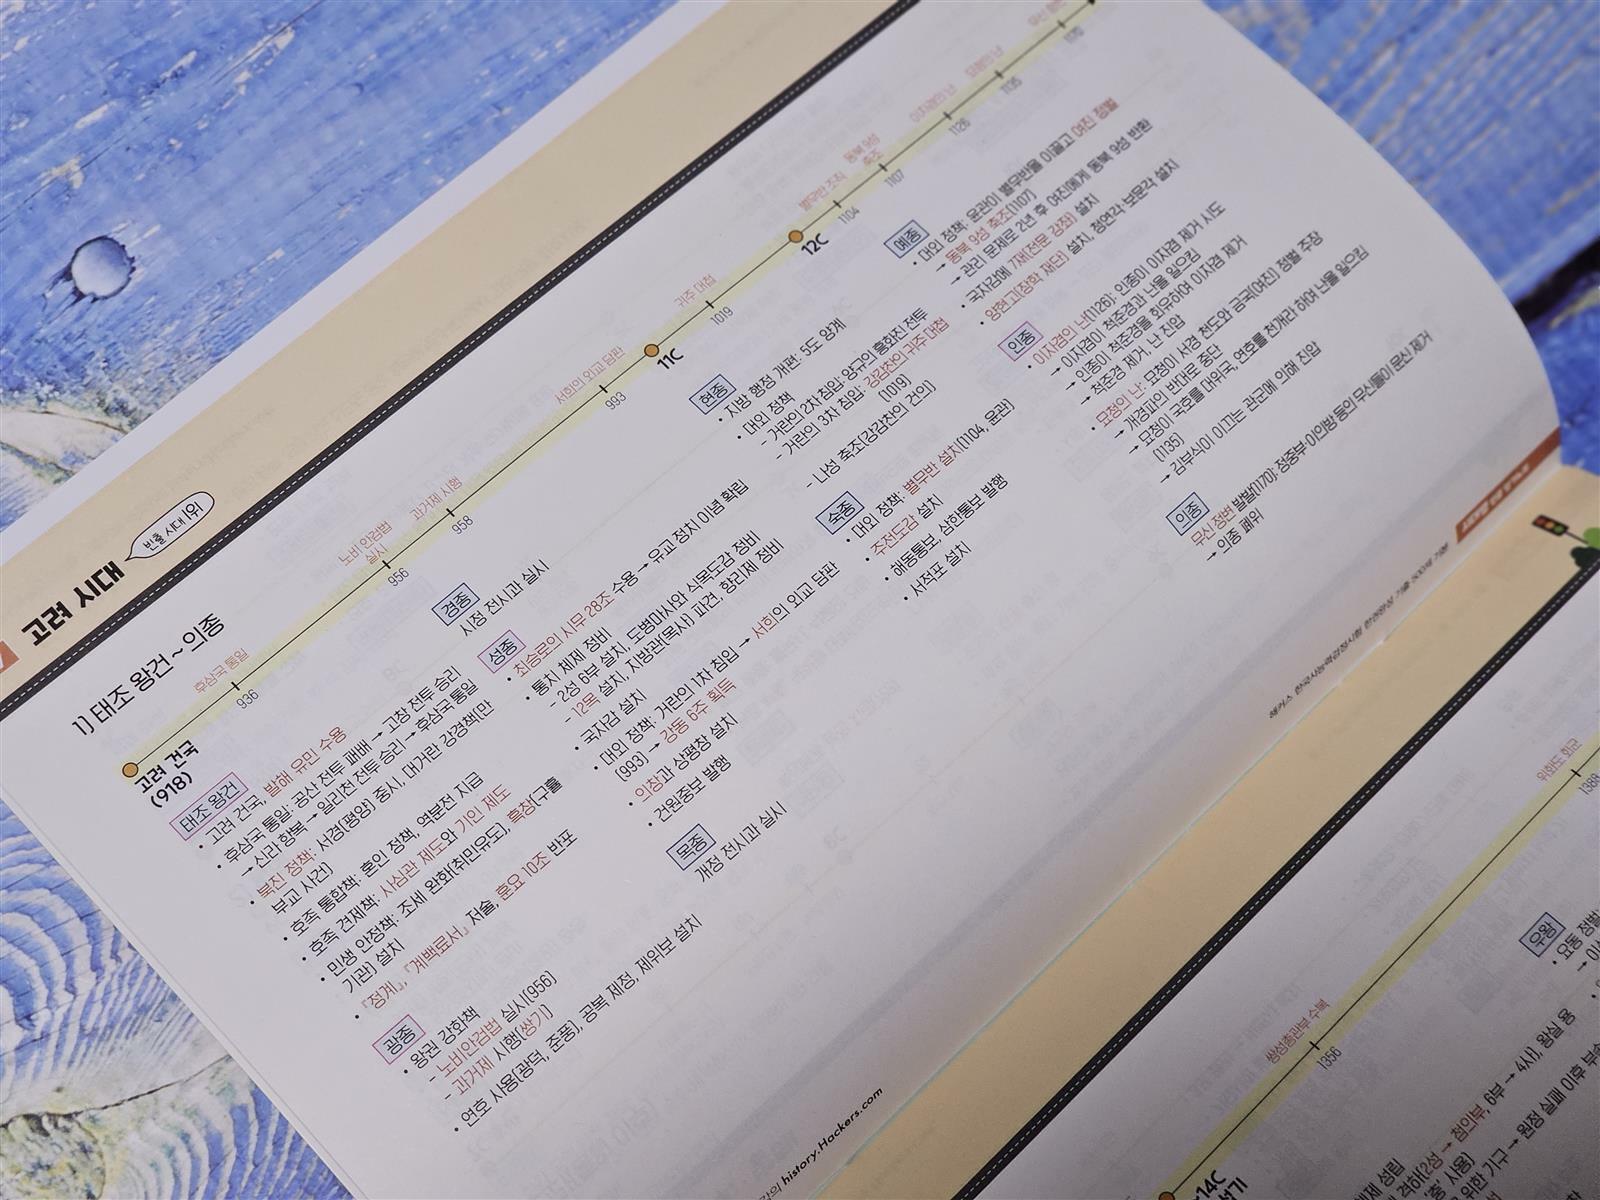 고려 시대
빈출 시대 1위
1) 태조 왕건 ~ 의종
후삼국 통일
노비안검법
실시
과거제 시행
서희의 외교 담판
귀주 대첩
별무반 조직
동북 9성
축조
이자겸의 난
묘청의 난
무신 정변
고려 건국
(918)
936
956
958
993
11C
1019
12C
1104
1107
1126
1135
1170
태조 왕건
• 고려 건국, 발해 유민 수용
• 후삼국 통일: 공산 전투 패배 → 고창 전투 승리
→ 신라 항복 → 일리천 전투 승리 → 후삼국 통일
• 북진 정책: 서경(평양) 중시, 대거란 강경책(만
부교 사건)
• 호족 통합책: 혼인 정책, 역분전 지급
• 호족 견제책: 사심관 제도와 기인 제도
• 민생 안정책: 조세 완화(취민유도), 흑창(구휼
기관) 설치
• 『정계』, 『계백료서』 저술, 훈요 10조 반포
광종
• 왕권 강화책
- 노비안검법 실시(956)
- 과거제 시행(쌍기)
• 연호 사용(광덕, 준풍), 공복 제정, 제위보 설치
경종
시정 전시과 실시
성종
• 최승로의 시무 28조 수용 → 유교 정치 이념 확립
• 통치 체제 정비
- 2성 6부 설치, 도병마사와 식목도감 정비
- 12목 설치, 지방관(목사) 파견, 향리제 정비
• 국자감 설치
• 대외 정책: 거란의 1차 침입 → 서희의 외교 담판
(993) → 강동 6주 획득
• 의창과 상평창 설치
• 건원중보 발행
목종
개정 전시과 실시
현종
• 지방 행정 개편: 5도 양계
• 대외 정책
- 거란의 2차 침입: 양규의 흥화진 전투
- 거란의 3차 침입: 강감찬의 귀주 대첩
(1019)
- 나성 축조(강감찬의 건의)
숙종
• 대외 정책: 별무반 설치(1104, 윤관)
• 주전도감 설치
• 해동통보, 삼한통보 발행
• 서적포 설치
예종
• 대외 정책: 윤관이 별무반을 이끌고 여진 정벌
→ 동북 9성 축조(1107)
→ 관리 문제로 2년 후 여진에게 동북 9성 반환
• 국자감에 7재(전문 강좌) 설치
• 양현고(장학 재단) 설치, 청연각·보문각 설치
인종
• 이자겸의 난(1126): 인종이 이자겸 제거 시도
→ 이자겸이 척준경과 난을 일으킴
→ 인종이 척준경을 회유하여 이자겸 제거
→ 척준경 제거, 난 진압
• 묘청의 난: 묘청이 서경 천도와 금국(여진) 정벌 주장
→ 개경파의 반대로 중단
→ 묘청이 국호를 대위국, 연호를 천개라 하여 난을 일으킴
(1135)
→ 김부식이 이끄는 관군에 의해 진압
의종
무신 정변 발발(1170): 정중부·이의방 등의 무신들이 문신 제거
→ 의종 폐위
해커스 한국사능력검정시험
history.Hackers.com
위화도 회군
1388
쌍성총관부 수복
1356
14C
우왕
• 요동 정벌
격하(2성 → 첨의부, 6부 → 4사), 왕실 용
원정 실패 이후 부속